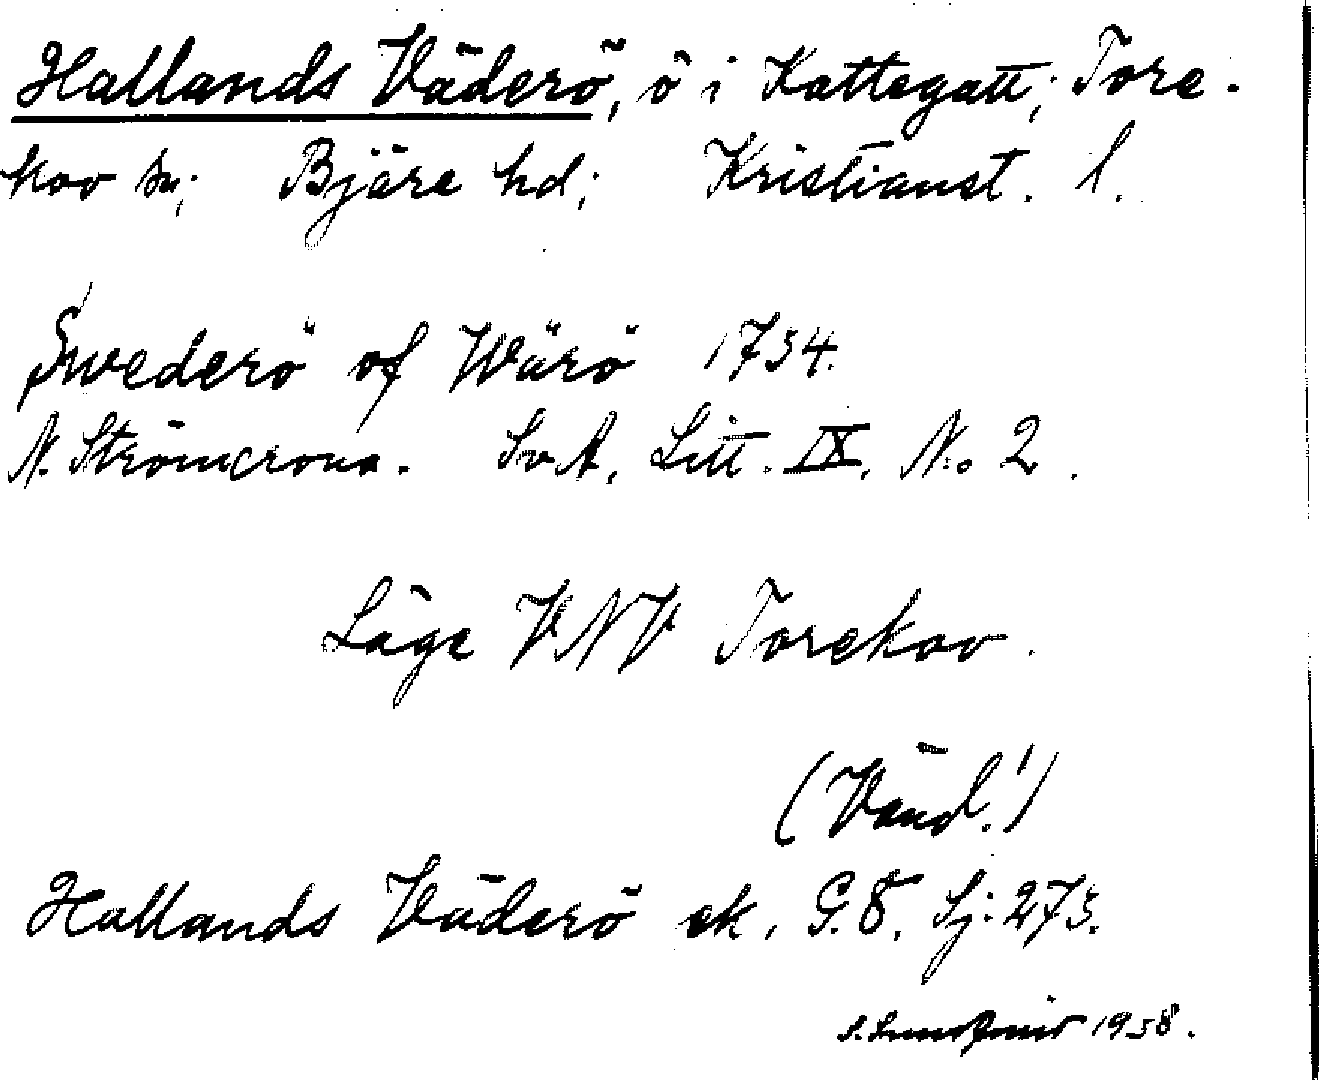 Hallands Väderö, ö i Kattegatt; Tore-
kov sn; Bjäre hd; Kristianst. l.
Swederö of Wärö 1734.
N. Strömcrona. SvA, Litt. IX, N:o 2.
Läge VNV Torekov.
(Vänd!)
Hallands Väderö ek. G.8. Sj:273.
1938.